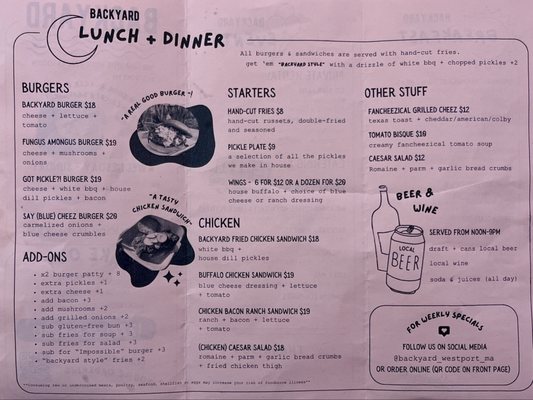 BACKYARD
LUNCH + DINNER
All burgers & sandwiches are served with hand-cut fries.
get 'em "BACKYARD STYLE" with a drizzle of white bbq + chopped pickles +2
BURGERS
BACKYARD BURGER $18
cheese + lettuce +
tomato
FUNGUS AMONGUS BURGER $19
cheese + mushrooms +
onions
GOT PICKLE?! BURGER $19
cheese + white bbq + house
dill pickles + bacon
SAY (BLUE) CHEEZ BURGER $20
carmelized onions +
blue cheese crumbles
ADD-ONS
• x2 burger patty + 8
• extra pickles +1
• extra cheese +1
• add bacon +3
• add mushrooms +2
• add grilled onions +2
• sub gluten-free bun +3
• sub fries for soup + 3
• sub fries for salad +3
• sub for "Impossible" burger +3
• "backyard style" fries +2
"A REAL GOOD BURGER -!
"A TASTY
CHICKEN SANDWICH"
STARTERS
HAND-CUT FRIES $8
hand-cut russets, double-fried
and seasoned
PICKLE PLATE $9
a selection of all the pickles
we make in house
WINGS - 6 FOR $12 OR A DOZEN FOR $20
house buffalo + choice of blue
cheese or ranch dressing
CHICKEN
BACKYARD FRIED CHICKEN SANDWICH $18
white bbq +
house dill pickles
BUFFALO CHICKEN SANDWICH $19
blue cheese dressing + lettuce
+ tomato
CHICKEN BACON RANCH SANDWICH $19
ranch + bacon + lettuce
+ tomato
(CHICKEN) CAESAR SALAD $18
romaine + parm + garlic bread crumbs
+ fried chicken thigh
OTHER STUFF
FANCHEEZICAL GRILLED CHEEZ $12
texas toast + cheddar/american/colby
TOMATO BISQUE $10
creamy fancheezical tomato soup
CAESAR SALAD $12
Romaine + parm + garlic bread crumbs
BEER &
WINE
LOCAL
BEER
SERVED FROM NOON-9PM
draft + cans local beer
local wine
soda & juices (all day)
FOR WEEKLY SPECIALS
FOLLOW US ON SOCIAL MEDIA
@backyard_westport_ma
OR ORDER ONLINE (QR CODE ON FRONT PAGE)
**Consuming raw or undercooked meats, poultry, seafood, shellfish or eggs may increase your risk of foodborne illness**